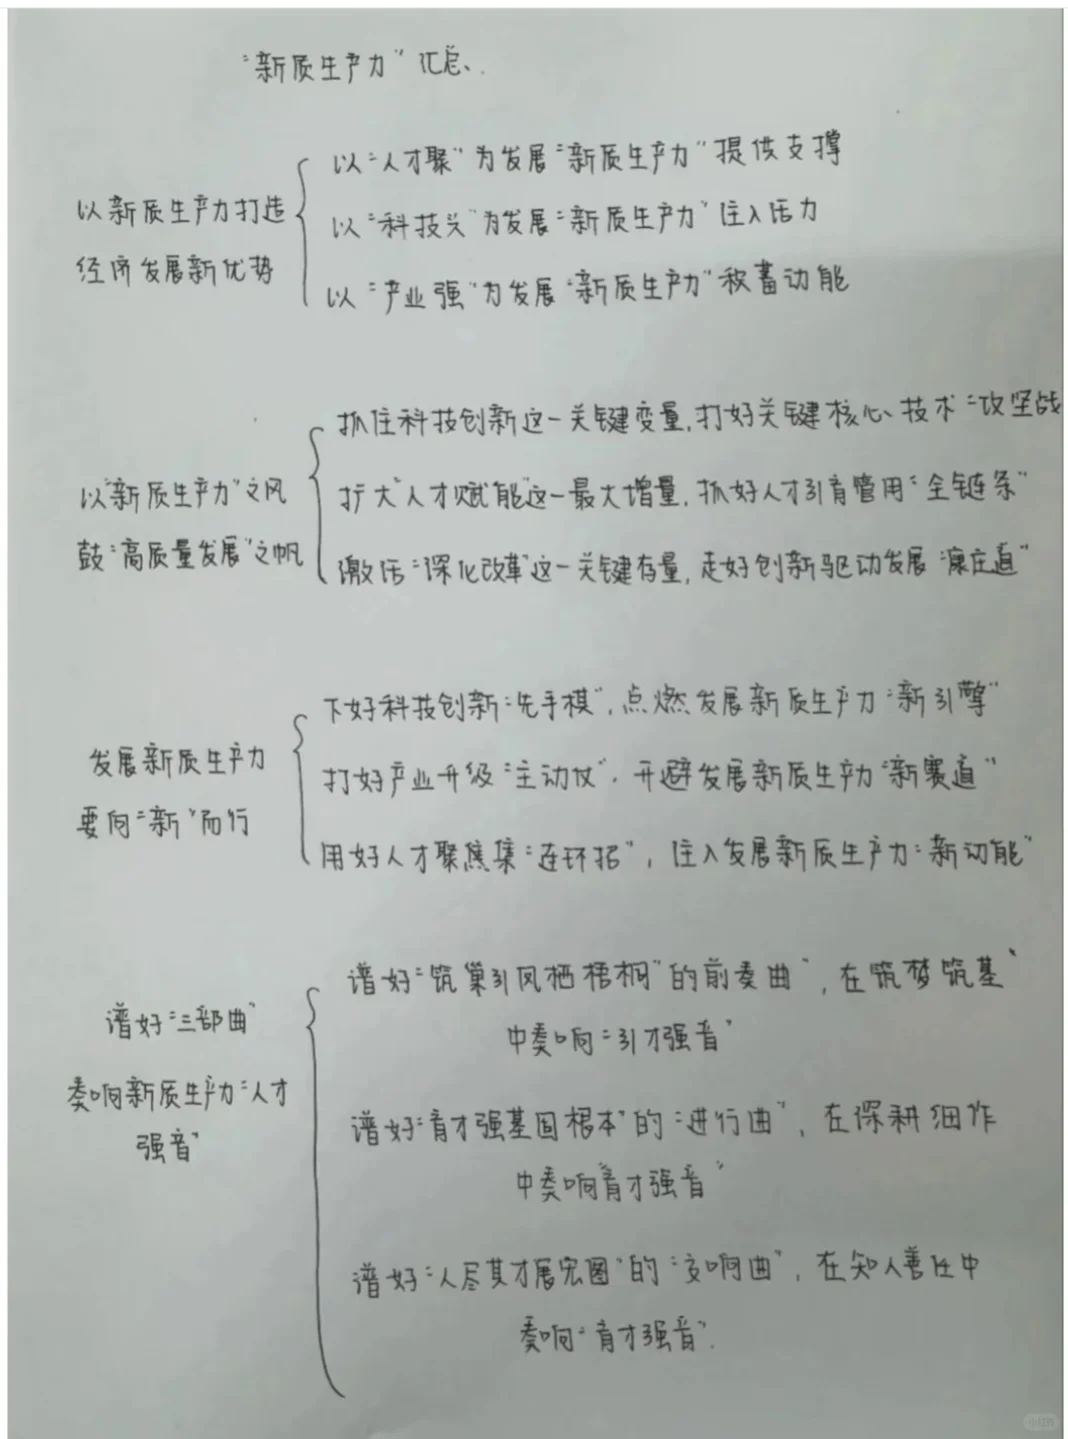 “新质生产力”汇总、
以新质生产力打造
经济发展新优势
以“人才聚”为发展“新质生产力”提供支撑
以“科技兴”为发展“新质生产力”注入活力
以“产业强”为发展“新质生产力”积蓄动能
以“新质生产力”之风
鼓“高质量发展”之帆
抓住科技创新这一关键变量,打好关键核心技术“攻坚战
扩大“人才赋能”这一最大增量,抓好人才引育管用“全链条”
激活“深化改革”这一关键存量,走好创新驱动发展“康庄道”
发展新质生产力
要向“新”而行
下好科技创新“先手棋”,点燃发展新质生产力“新引擎”
打好产业升级“主动仗”,开避发展新质生产力“新赛道”
用好人才聚焦集“连环招”,注入发展新质生产力“新动能”
谱好“三部曲”
奏响新质生产力“人才
强音”
谱好“筑巢引凤栖梧桐”的前奏曲”,在筑梦筑基
中奏响“引才强音”
谱好“育才强基固根本”的“进行曲”,在深耕细作
中奏响“育才强音”
谱好“人尽其才展宏图”的“交响曲”,在知人善任中
奏响“育才强音”.
小红书